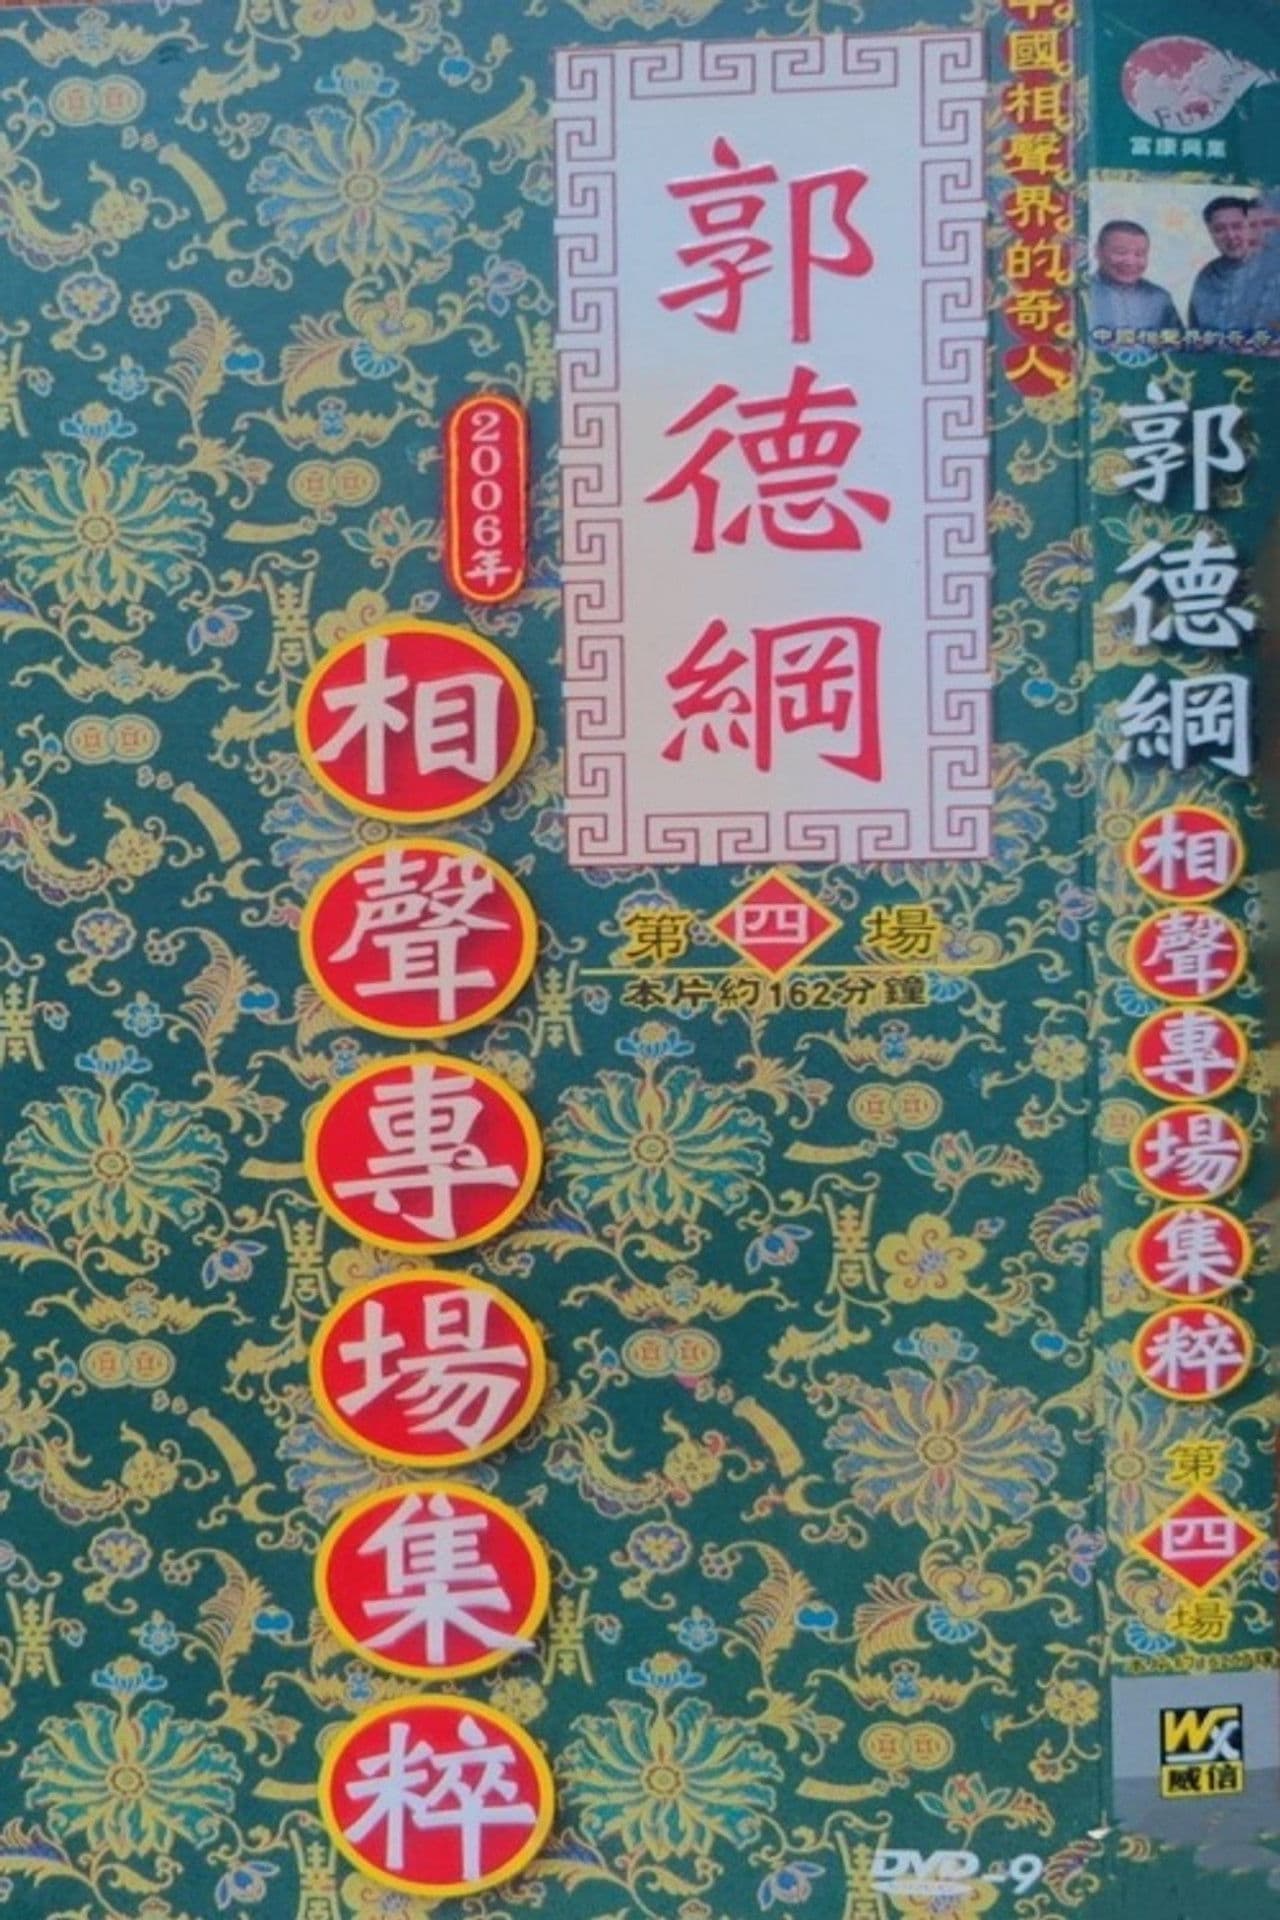 中國相聲界的奇人
郭德綱
第四場
本片約162分鐘
2006年
相聲專場集粹
DVD-9
富康興業
中國相聲界的奇
郭德綱
相聲專場集粹
第四場
WX
威信